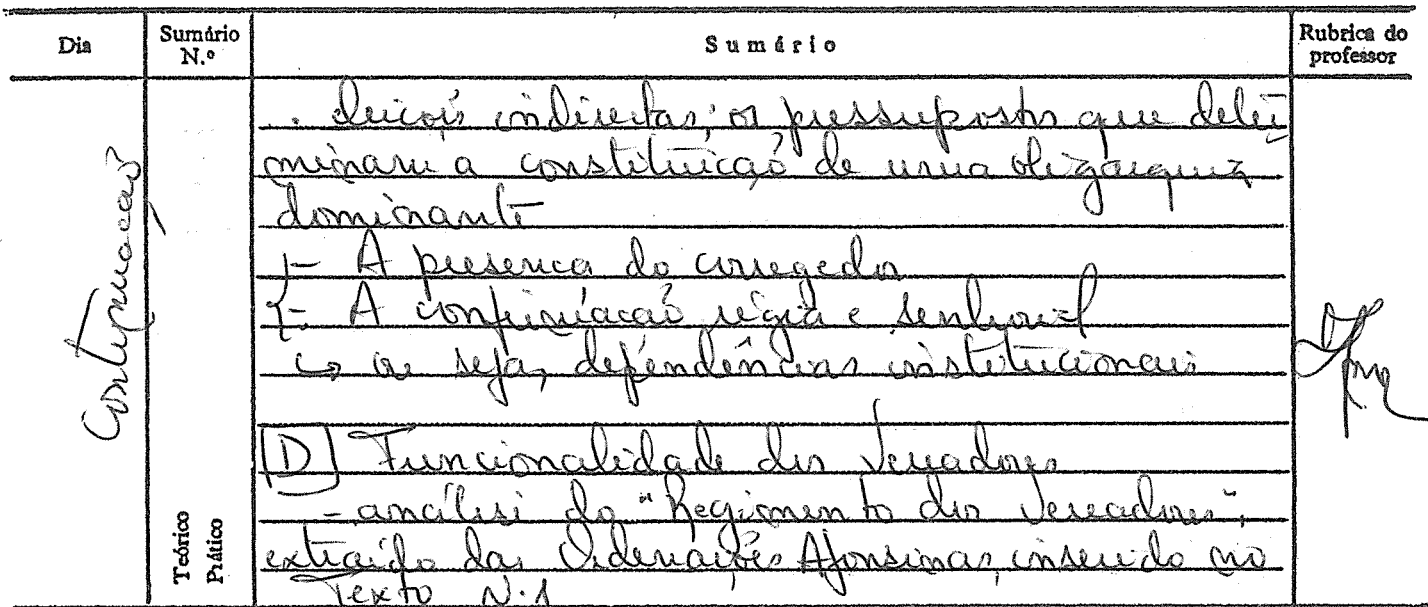 Dia
Sumário N.º
Sumário
Rubrica do professor
Continuação
. eleições indirectas; os pressupostos que deter
minam a constituição de uma oligarquia
dominante
- A presença do corregedor
- A confirmação régia e senhorial
↳ ou seja, dependências institucionais
[D] Funcionalidade dos Vereadores
- análise do "Regimento dos Vereadores",
extraído das Ordenações Afonsinas, inserido no
Texto N.1
Teórico
Prático